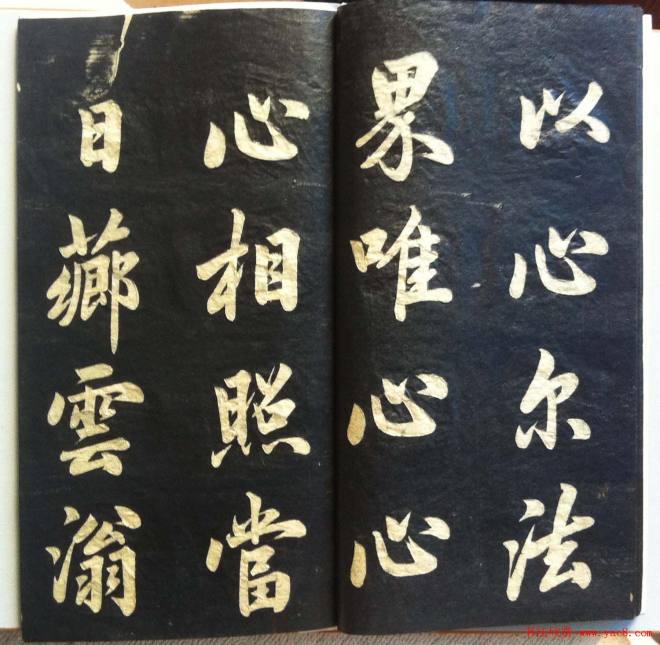 以心尔法
界唯心心
心相照當
日薌雲滃
www.yac8.com